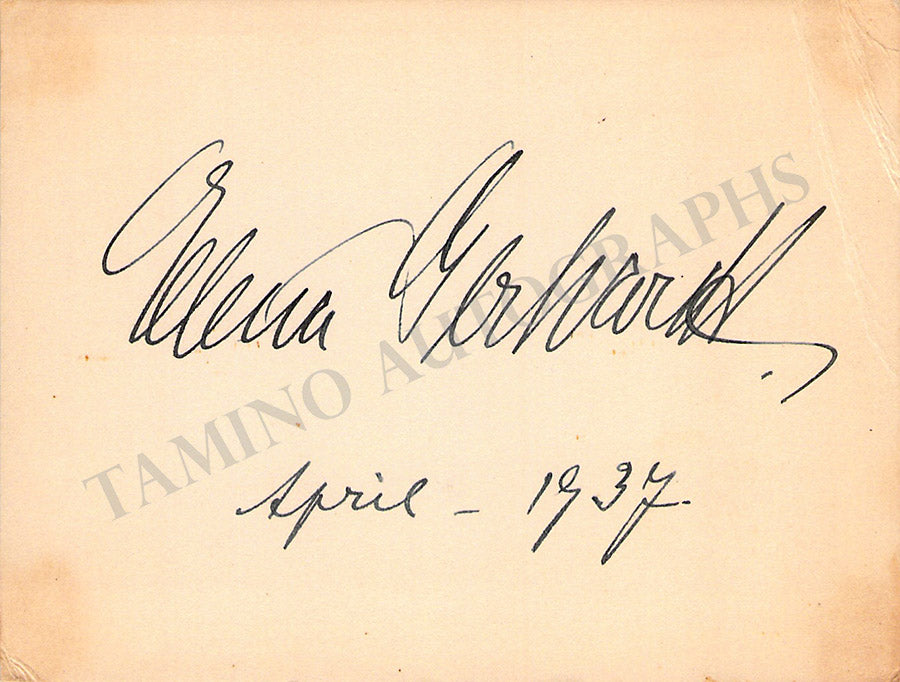 Elena Gerhardt.
TAMINO AUTOGRAPHS
April – 1937.